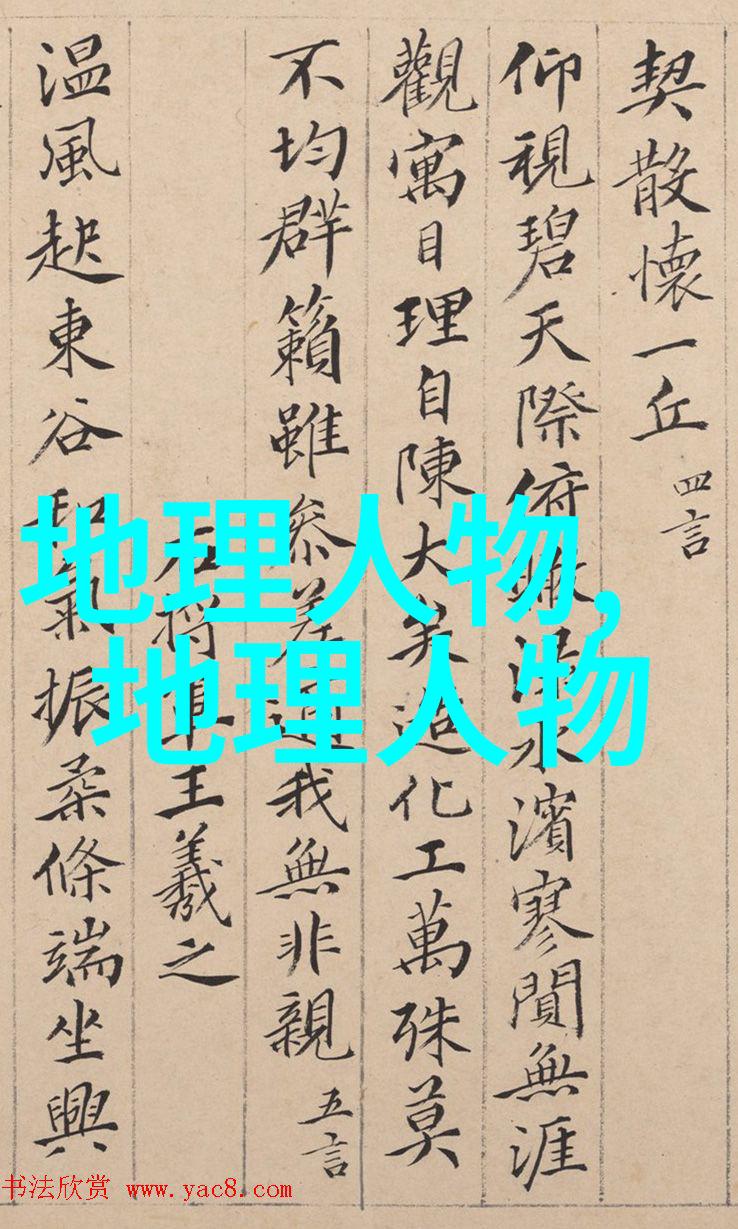 契散懷一丘 四言
仰視碧天際俯瞰淥水濱寥無涯
觀寓目理自陳大矣造化工萬殊莫
不均群籟雖參差適我無非親 五言
右將軍王羲之
温風起東谷和氣振柔條端坐興
地理人物,
地理人物
书法欣赏 www.yac8.com